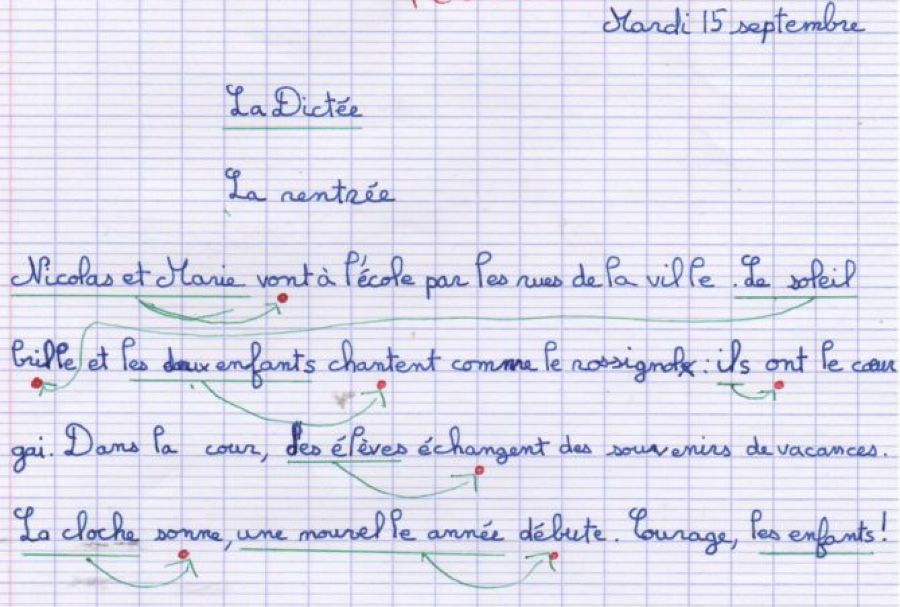 Mardi 15 septembre
La Dictée
La rentrée
Nicolas et Marie vont à l'école par les rues de la ville. Le soleil
brille et les deux enfants chantent comme le rossignol : ils ont le cœur
gai. Dans la cour, les élèves échangent des souvenirs de vacances.
La cloche sonne, une nouvelle année débute. Courage, les enfants !